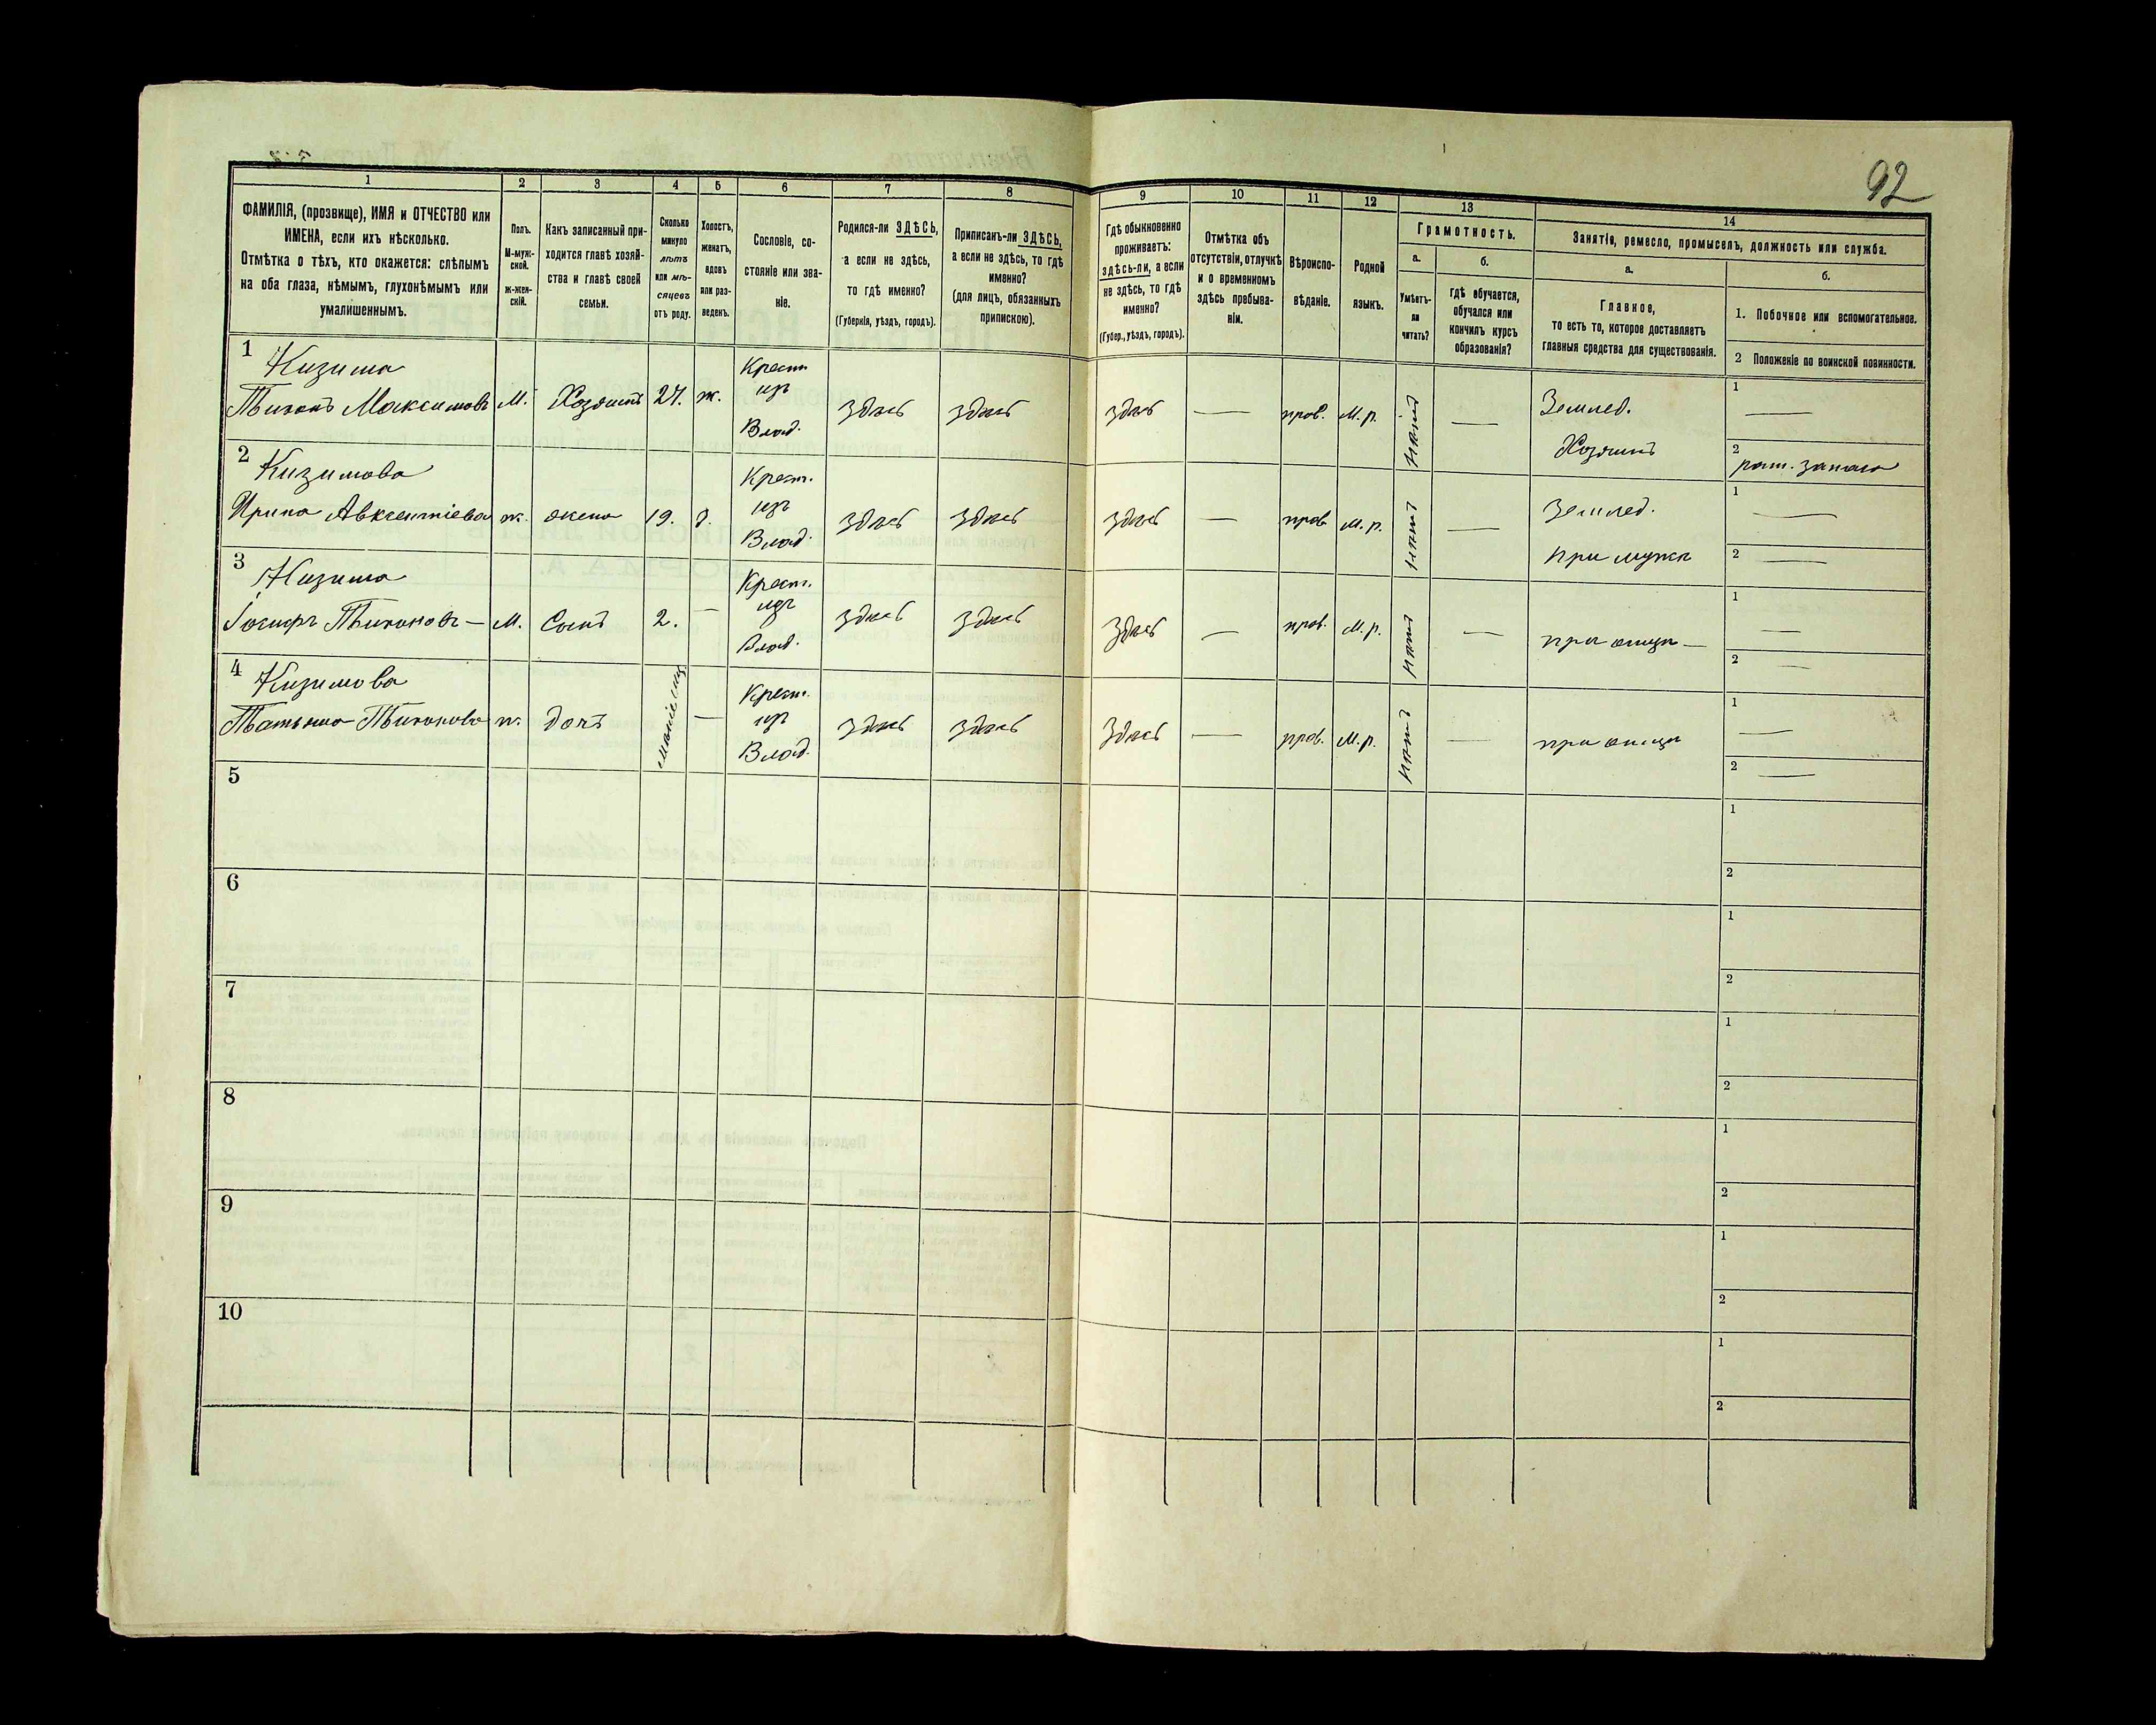 92
1 2 3 4 5 6 7 8 9 10 11 12 13 14
ФАМИЛІЯ, (прозвище), ИМЯ и ОТЧЕСТВО или
ИМЕНА, если ихъ нѣсколько.
Отмѣтка о тѣхъ, кто окажется: слѣпымъ
на оба глаза, нѣмымъ, глухонѣмымъ или
умалишеннымъ.
Полъ.
М-муж-
ской.
ж-жен-
скій.
Какъ записанный при-
ходится главѣ хозяй-
ства и главѣ своей
семьи.
Сколько
минуло
лѣтъ
или мѣ-
сяцевъ
отъ роду.
Холостъ,
женатъ,
вдовъ
или раз-
веденъ.
Сословіе, со-
стояніе или зва-
ніе.
Родился-ли ЗДѢСЬ,
а если не здѣсь,
то гдѣ именно?
(Губернія, уѣздъ, городъ).
Приписанъ-ли ЗДѢСЬ,
а если не здѣсь, то гдѣ
именно?
(для лицъ, обязанныхъ
припискою).
Гдѣ обыкновенно
проживаетъ:
здѣсь-ли, а если
не здѣсь, то гдѣ
именно?
(Губер., уѣздъ, городъ).
Отмѣтка объ
отсутствіи, отлучкѣ
и о временномъ
здѣсь пребыва-
ніи.
Вѣроиспо-
вѣданіе.
Родной
языкъ.
Грамотность.
а.
Умѣетъ-
ли
читать?
б.
гдѣ обучается,
обучался или
кончилъ курсъ
образованія?
Занятіе, ремесло, промыселъ, должность или служба.
а.
Главное,
то есть то, которое доставляетъ
главныя средства для существованія.
б.
1. Побочное или вспомогательное.
2 Положеніе по воинской повинности.
1 Кизима
Тихонъ Максимовъ М. Хозяинъ 27. ж. Крест. изъ Влад. здѣсь здѣсь здѣсь — прав. М.р. нѣтъ — Землед. Хозяинъ
1 —
2 рат. запаса
2 Кизимова
Ирина Авксентіева ж. жена 19. З. Крест. изъ Влад. здѣсь здѣсь здѣсь — прав. М.р. нѣтъ — Землед. при мужѣ
1 —
2 —
3 Кизима
Іосифъ Тихоновъ — М. Сынъ 2. — Крест. изъ Влад. здѣсь здѣсь здѣсь — прав. М.р. нѣтъ — при отцѣ —
1 —
2 —
4 Кизимова
Татьяна Тихонова ж. дочь — Крест. изъ Влад. здѣсь здѣсь здѣсь — прав. М.р. нѣтъ — при отцѣ
1 —
2 —
5
1
2
6
1
2
7
1
2
8
1
2
9
1
2
10
1
2